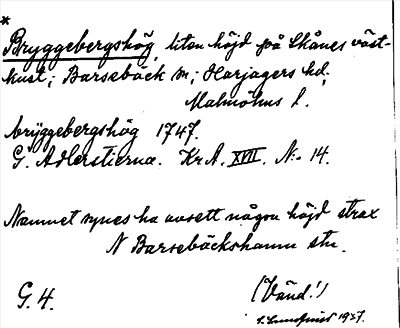 *
Bryggebergshög, liten höjd på Skånes väst-
kust; Barsebäck sn; Harjagers hd;
Malmöhus l.
brÿggebergshög 1747.
G. Adlerstierna. Kr A. XVII. No 14.
Namnet synes ha avsett någon höjd strax
N Barsebäckshamn stn.
G. 4.
(Vänd!)
S. Lundquist 1937.